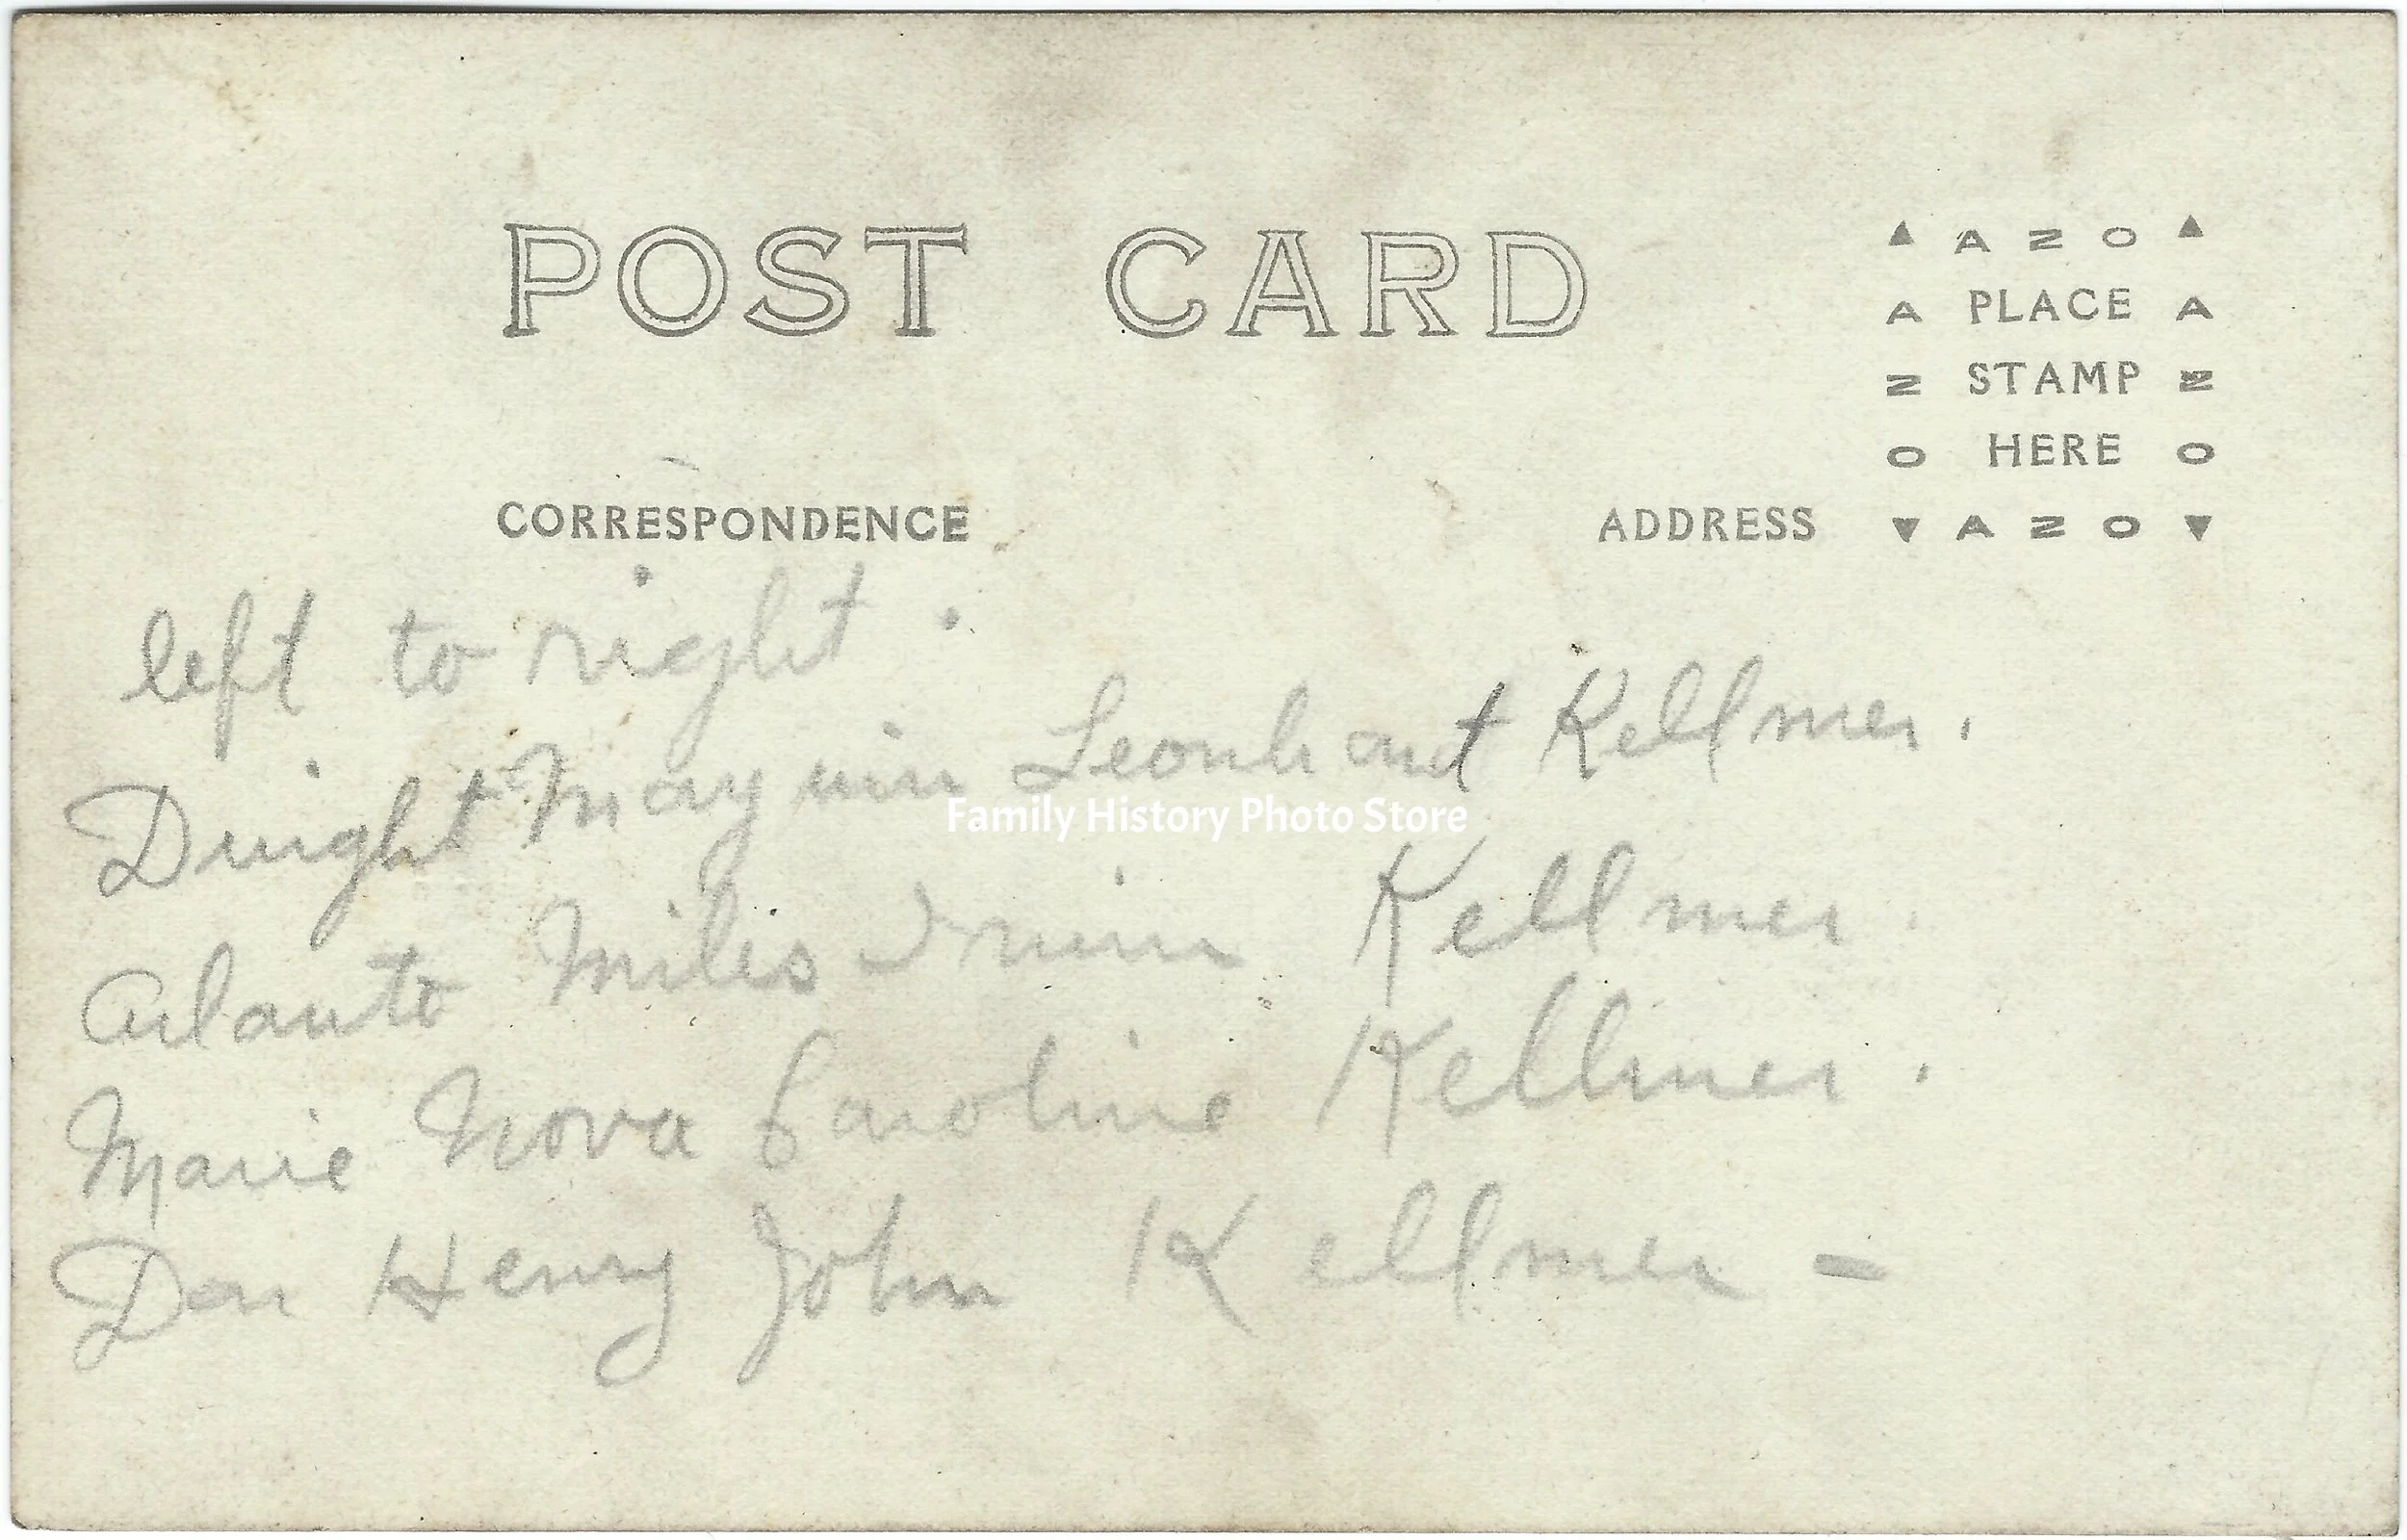 POST CARD
▲ A Z O ▲
A PLACE A
Z STAMP Z
O HERE O
▼ A Z O ▼
CORRESPONDENCE
ADDRESS
left to right.
Dwight May Leonhart Kellmer.
Family History Photo Store
Miles Kellmer.
Marie Nova Caroline Kellmer.
Don Henry John Kellmer -